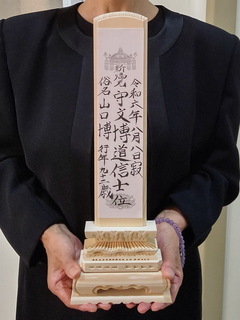 令和六年八月八日寂
新帰元 守文博道信士位
俗名山口博
行年九十二歳